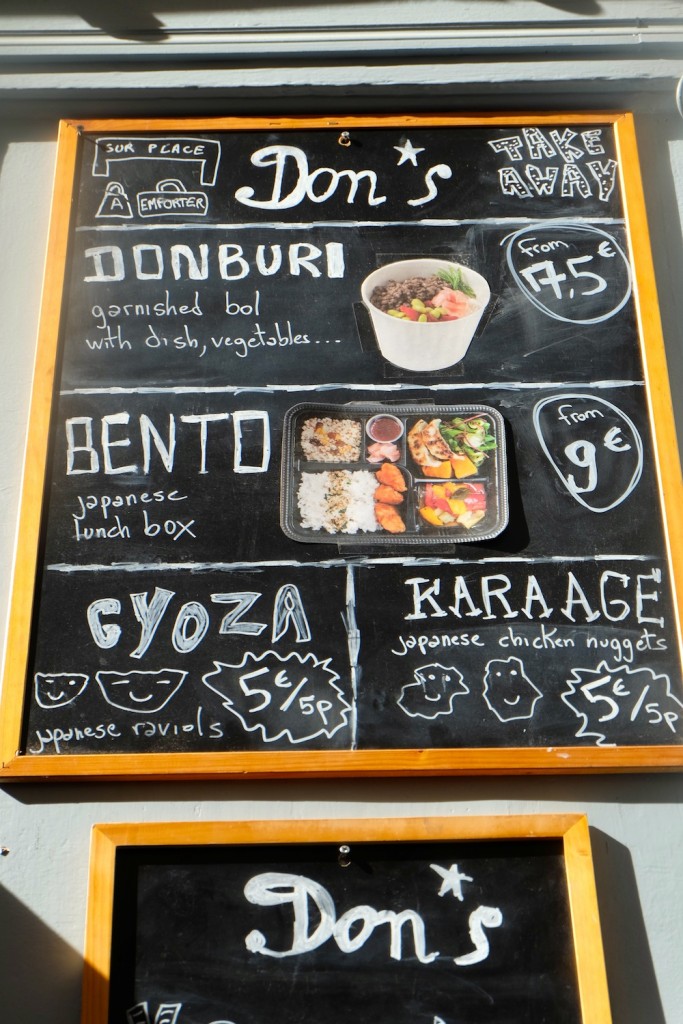 SUR PLACE
A EMPORTER
Don's
TAKE
AWAY
DONBURI
garnished bol
with dish, vegetables...
from
7,5€
BENTO
japanese
lunch box
from
9€
GYOZA
japanese raviols
5€/5p
KARAAGE
japanese chicken nuggets
5€/5p
Don's